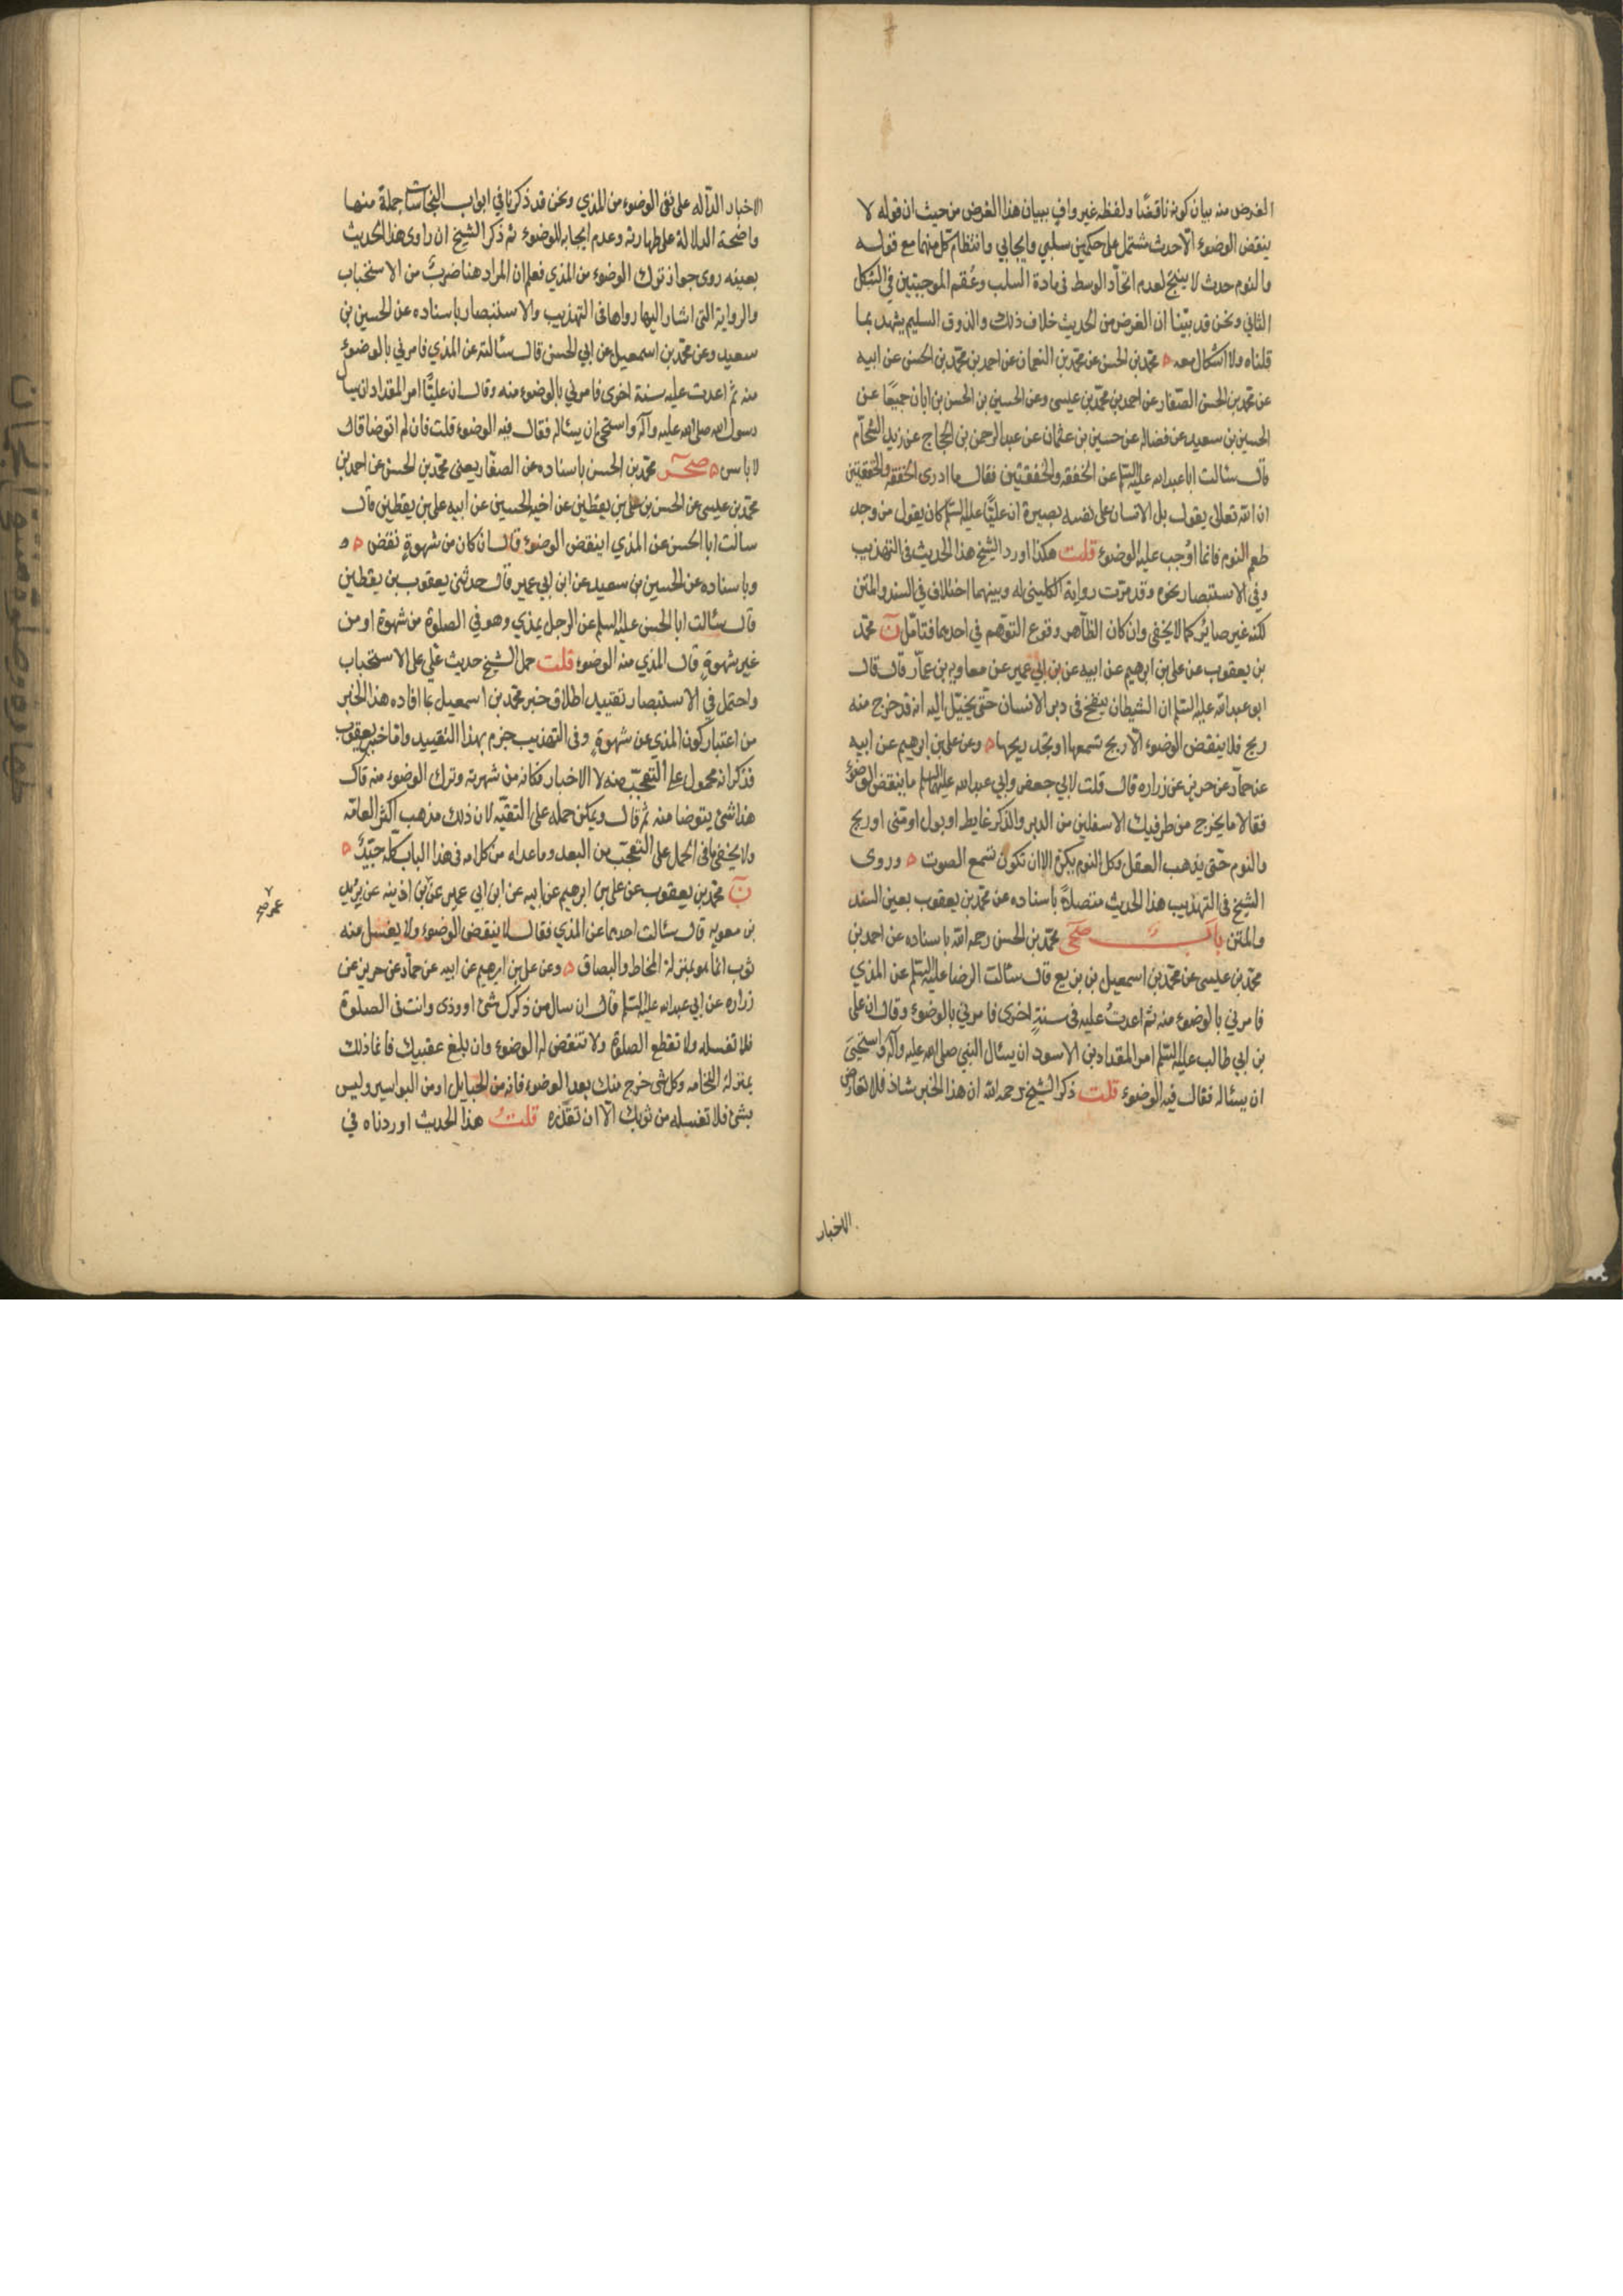 الغرض منه بيان كونه ناقضًا ولفظه غير وافٍ ببيان هذا الغرض من حيث ان قوله لا
ينقض الوضوء الّا حدث مشتمل على حكمين سلبي وايجابي وانتظام كل منهما مع قوله
والنوم حدث لا ينتج لعدم اتحاد الوسط في مادة السلب وعُقم الموجبتين في الشكل
الثاني ونحن قد بيّنا ان الغرض من الحديث خلاف ذلك والذوق السليم يشهد بما
قلناه ولا اشكال معه ه محمّد بن الحسن عن محمّد بن النعمان عن احمد بن محمّد بن الحسن عن ابيه
عن محمد بن الحسن الصفار عن احمد بن محمّد بن عيسى وعن الحسين بن الحسن بن ابان جميعًا عن
الحسين بن سعيد عن فضاله عن حسين بن عثمان عن عبد الرحمن بن الحجاج عن زيد الشحّام
قال سئالت ابا عبد الله عليه السّلم عن الخفقه والخفقتين فقال ما ادرى الخفقه والخفقتين
ان الله تعالى يقول بل الانسان على نفسه بصيرة ان عليًّا عليه السّلم كان يقول من وجد
طعم النوم فانما اوُجب عليه الوضوء قلت هكذا اورد الشيخ هذا الحديث في التهذيب
وفي الاستبصار نحوه وقد مرّت رواية الكليني له وبينهما اختلاف في السند والمتن
لكنه غير ضاير كما لا يخفى وان كان الظاهر وقوع التوهم في احدهما فتامّل ن محمّد
بن يعقوب عن علي بن ابرهيم عن ابيه عن بن ابي عمير عن معاويه بن عمّار قال قال
ابو عبد الله عليه السّلم ان الشيطان ينفخ في دبر الانسان حتّى يخيّل اليه انه قد خرج منه
ريح فلا ينقض الوضوء الّا ريح تسمعها او تجد ريحها ه وعن علي بن ابرهيم عن ابيه
عن حمّاد عن حريز عن زراره قال قلت لابي جعفر وابي عبد الله عليهما السلم ما ينقض الوضوء
فقالا ما يخرج من طرفيك الاسفلين من الدبر والذكر غايط او بول او منّى او ريح
والنوم حتّى يذهب العقل وكل النوم يكره الا ان تكون تسمع الصوت ه وروى
الشيخ في التهذيب هذا الحديث متصلاً باسناده عن محمّد بن يعقوب بعين السند
والمتن باب صحى محمّد بن الحسن رحمه الله باسناده عن احمد بن
محمّد بن عليسى عن محمّد بن اسمعيل بن بزيع قال سئالت الرضا عليه السّلم عن المذي
فامرني بالوضوء منه ثم اعدتُ عليه في سنةٍ اخرى فامرني بالوضوء وقال ان علي
بن ابي طالب عليه السّلم امر المقداد بن الاسود ان يسئال النبي صلى الله عليه وآله واستحيى
ان يسئاله فقال فيه الوضوء قلت ذكر الشيخ رحمه الله ان هذا الخبر شاذ فلا تعارض
الاخبار
الاخبار الدآله على نفى الوضوء من المذي ونحن قد ذكرنا في ابواب النجاسات جملةً منها
واضحة الدلالة على طهارته وعدم ايجابه للوضوء ثم ذكر الشيخ ان راوى هذا الحديث
بعينه روى جواز ترك الوضوء من المذي فعلم ان المراد هنا ضربٌ من الاستحباب
والرواية التى اشار اليها رواها في التهذيب والاستبصار باسناده عن الحسين بن
سعيد وعن محمّد بن اسمعيل عن ابي الحسن قال سئالته عن المذي فامرني بالوضوء
منه ثم اعدت عليه سنة اخرى فامرني بالوضوء منه وقال ان عليًّا امر المقداد ان يسال
رسول الله صلى الله عليه وآله واستحى ان يسئاله فقال فيه الوضوء قلت فان لم اتوضا قال
لا باس ه صحر محمّد بن الحسن باسناده عن الصفّار يعنى محمّد بن الحسن عن احمد بن
محمّد بن عيسى عن الحسن بن على بن يقطين عن اخيه الحسين عن ابيه على بن يقطين قال
سالت ابا الحسن عن المذي اينقض الوضوء قال ان كان من شهوةٍ نقض ه و
وباسناده عن الحسين بن سعيد عن ابن ابي عمير قال حدثنى يعقوب بن يقطين
قال سئالت ابا الحسن عليه السلم عن الرجل يمذي وهو في الصلوة من شهوة او من
غير شهوةٍ قال المذي منه الوضوء قلت حمل الشيخ حديث علي على الاستحباب
واحتمل في الاستبصار تقييد اطلاق خبر محمّد بن اسمعيل بما افاده هذا الخبر
من اعتبار كون المذي عن شهوةٍ وفى التهذيب جزم بهذا التقييد وامّا خبر يعقوب
فذكر انه محمول على التعجّب منه لا الاخبار فكانه من شهرته وترك الوضوء منه قال
هذا شئ يتوضا منه ثم قال ويمكن حمله على التقيّه لان ذلك مذهب اكثر العامّه
ولا يخفى ما في الحمل على التعجّب من البعد وما عداه من كلامه في هذا الباب كله جيّدٌ ه
ن محمّد بن يعقوب عن على بن ابرهيم عن ابيه عن ابن ابي عمير عن بن اذينه عن يزيد
بن معويه قال سئالت احدهما عن المذي فقال لا ينقض الوضوء ولا يغسل منه
ثوب انما هو بمنزلة المخاط والبصاق ه وعن على بن ابرهيم عن ابيه عن حمّاد عن حريز عن
زراره عن ابي عبد الله عليه السّلم قال ان سال من ذكرك شئ او وذى وانت فى الصلوة
فلا تغسله ولا تقطع الصلوة ولا تنقض له الوضوء وان بلغ عقبيك فانما ذلك
بمنزلة النخامه وكل شى خرج منك بعد الوضوء فانه من الحبايل او من البواسير وليس
بشئ فلا تغسله من ثوبك الّا ان تقذره قلت هذا الحديث اوردناه في
عمر صح